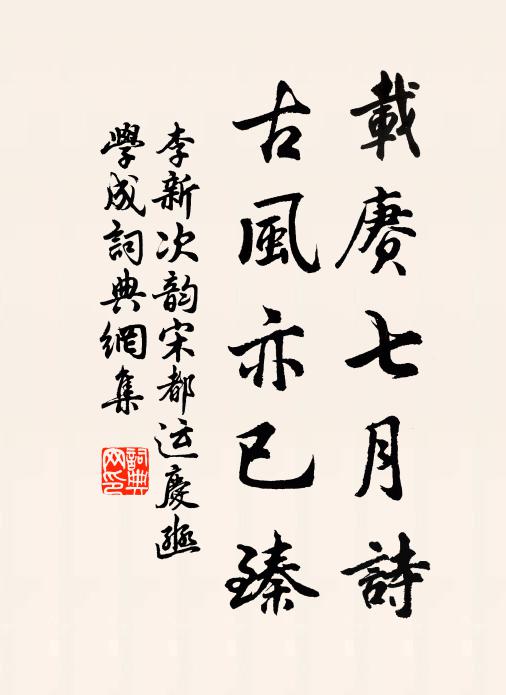 載賡七月詩
古風亦已臻
李新次韵宋都运慶
學成詞典網集
詞典
网印